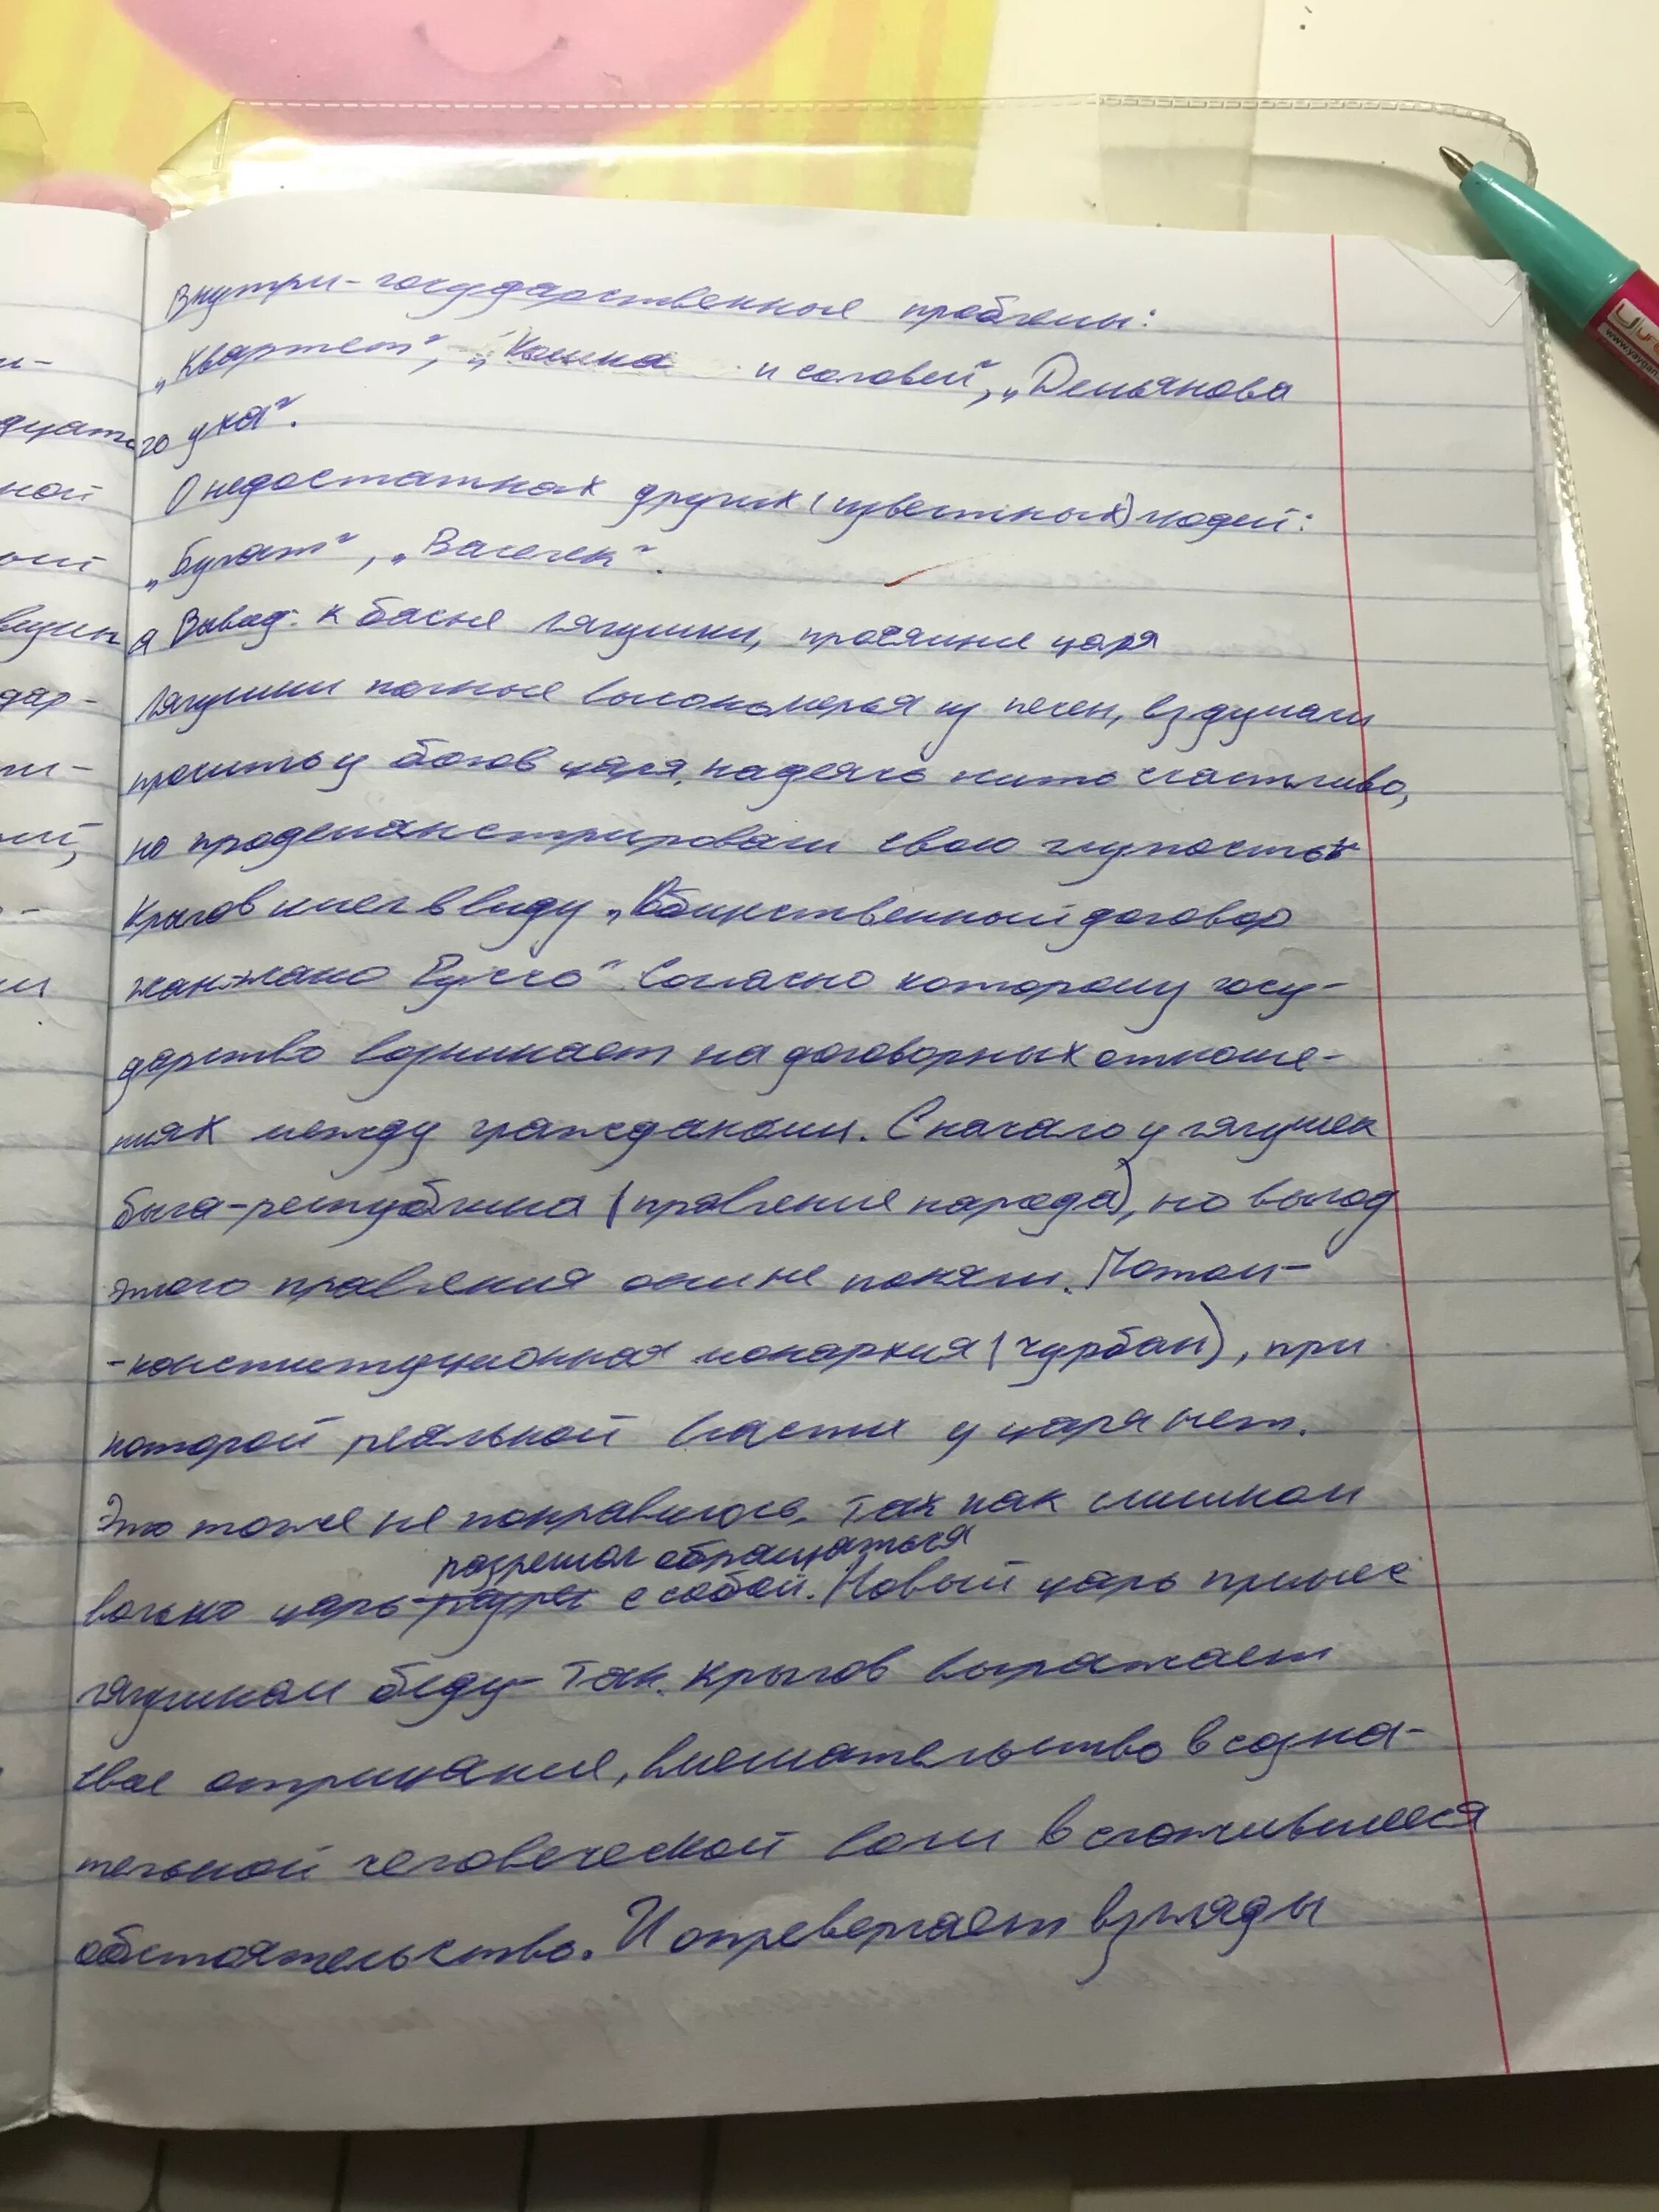 Внутри-государственные проблемы:
„Квартет", „Кошка и соловей", „Демьянова
уха".
О недостатках других (известных) людей:
„Булат", „Василек".
Вывод: к басне Лягушки, просящие царя
Лягушки полные высокомерья
просить у богов царя, надеясь жить счастливо,
но продеманстрировали свою глупость
Крылов имел в виду „Общественный договор
жан-жако Руссо". Согласно которому госу-
дарство возникает на договорных отноше-
ниях между гражданами. Сначало у лягушек
была-республика (правление народа), но выгод
этого правления они не поняли. Потом-
-конституционная монархия (чурбан), при
которой реальной власти у царя нет.
Это тоже не понравилось, так как слишком
разрешал обращаться
вольно царь с собой. Новый царь принес
лягушкам беду- Так. Крылов выражает
свое отрицание, вмешательство в созна-
тельной человеческой воли в сложившиеся
обстоятельство. И опревергает взгляды
дцать
ной
дар-
го
я